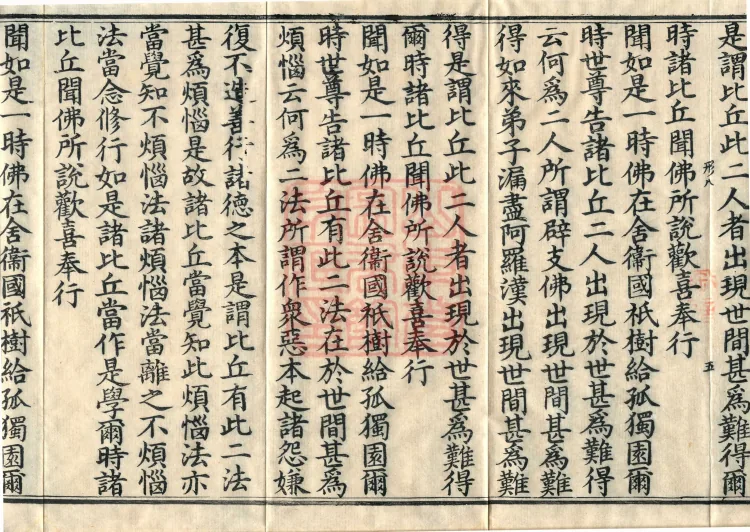 是謂比丘此二人者出現世間甚爲難得爾
時諸比丘聞佛所說歡喜奉行
聞如是一時佛在舍衞國祇樹給孤獨園爾
時世尊告諸比丘二人出現於世甚爲難得
云何爲二人所謂辟支佛出現世間甚爲難
得如來弟子漏盡阿羅漢出現世間甚爲難
得是謂比丘此二人者出現於世甚爲難得
爾時諸比丘聞佛所說歡喜奉行
聞如是一時佛在舍衞國祇樹給孤獨園爾
時世尊告諸比丘有此二法在於世間甚爲
煩惱云何爲二法所謂作衆惡本起諸怨嫌
復不造善行諸德之本是謂比丘有此二法
甚爲煩惱是故諸比丘當覺知此煩惱法亦
當覺知不煩惱法諸煩惱法當離之不煩惱
法當念修行如是諸比丘當作是學爾時諸
比丘聞佛所說歡喜奉行
聞如是一時佛在舍衞國祇樹給孤獨園爾